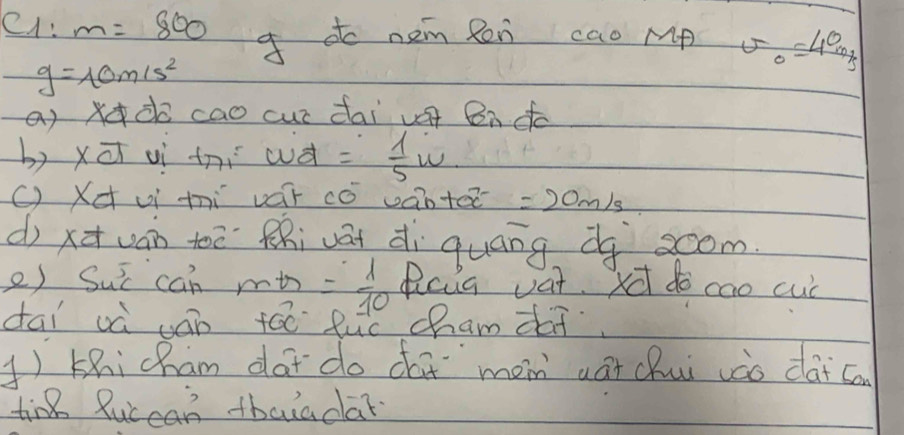 C1: m = 800 g đc ném lên cao MĐ v₀ = 40m/s
g = 10m/s²
a) Xđ độ cao cực đại vật lên đc
b) Xđ vị trí wđ = 1/5 w.
c) Xđ vị trí vật có vận tốc = 20m/s.
d) Xđ vận tốc khi vật đi quãng đg 200m.
e) Sức cản mtr = 1/10 P của vật. Xđ độ cao cực
đại và vận tốc lúc chạm đất.
f) Khi chạm đất do đất mềm vật chui vào đất
tính lực cản đất.